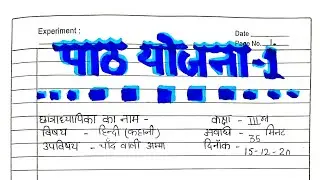 Experiment : Date
Page No. 1.
पाठ योजना-1
छात्राध्यापिका का नाम - कक्षा - III rd
विषय - हिन्दी (कहानी) अवधि - 35 मिनट
उपविषय - चाँद वाली अम्मा दिनाँक - 15-12-20